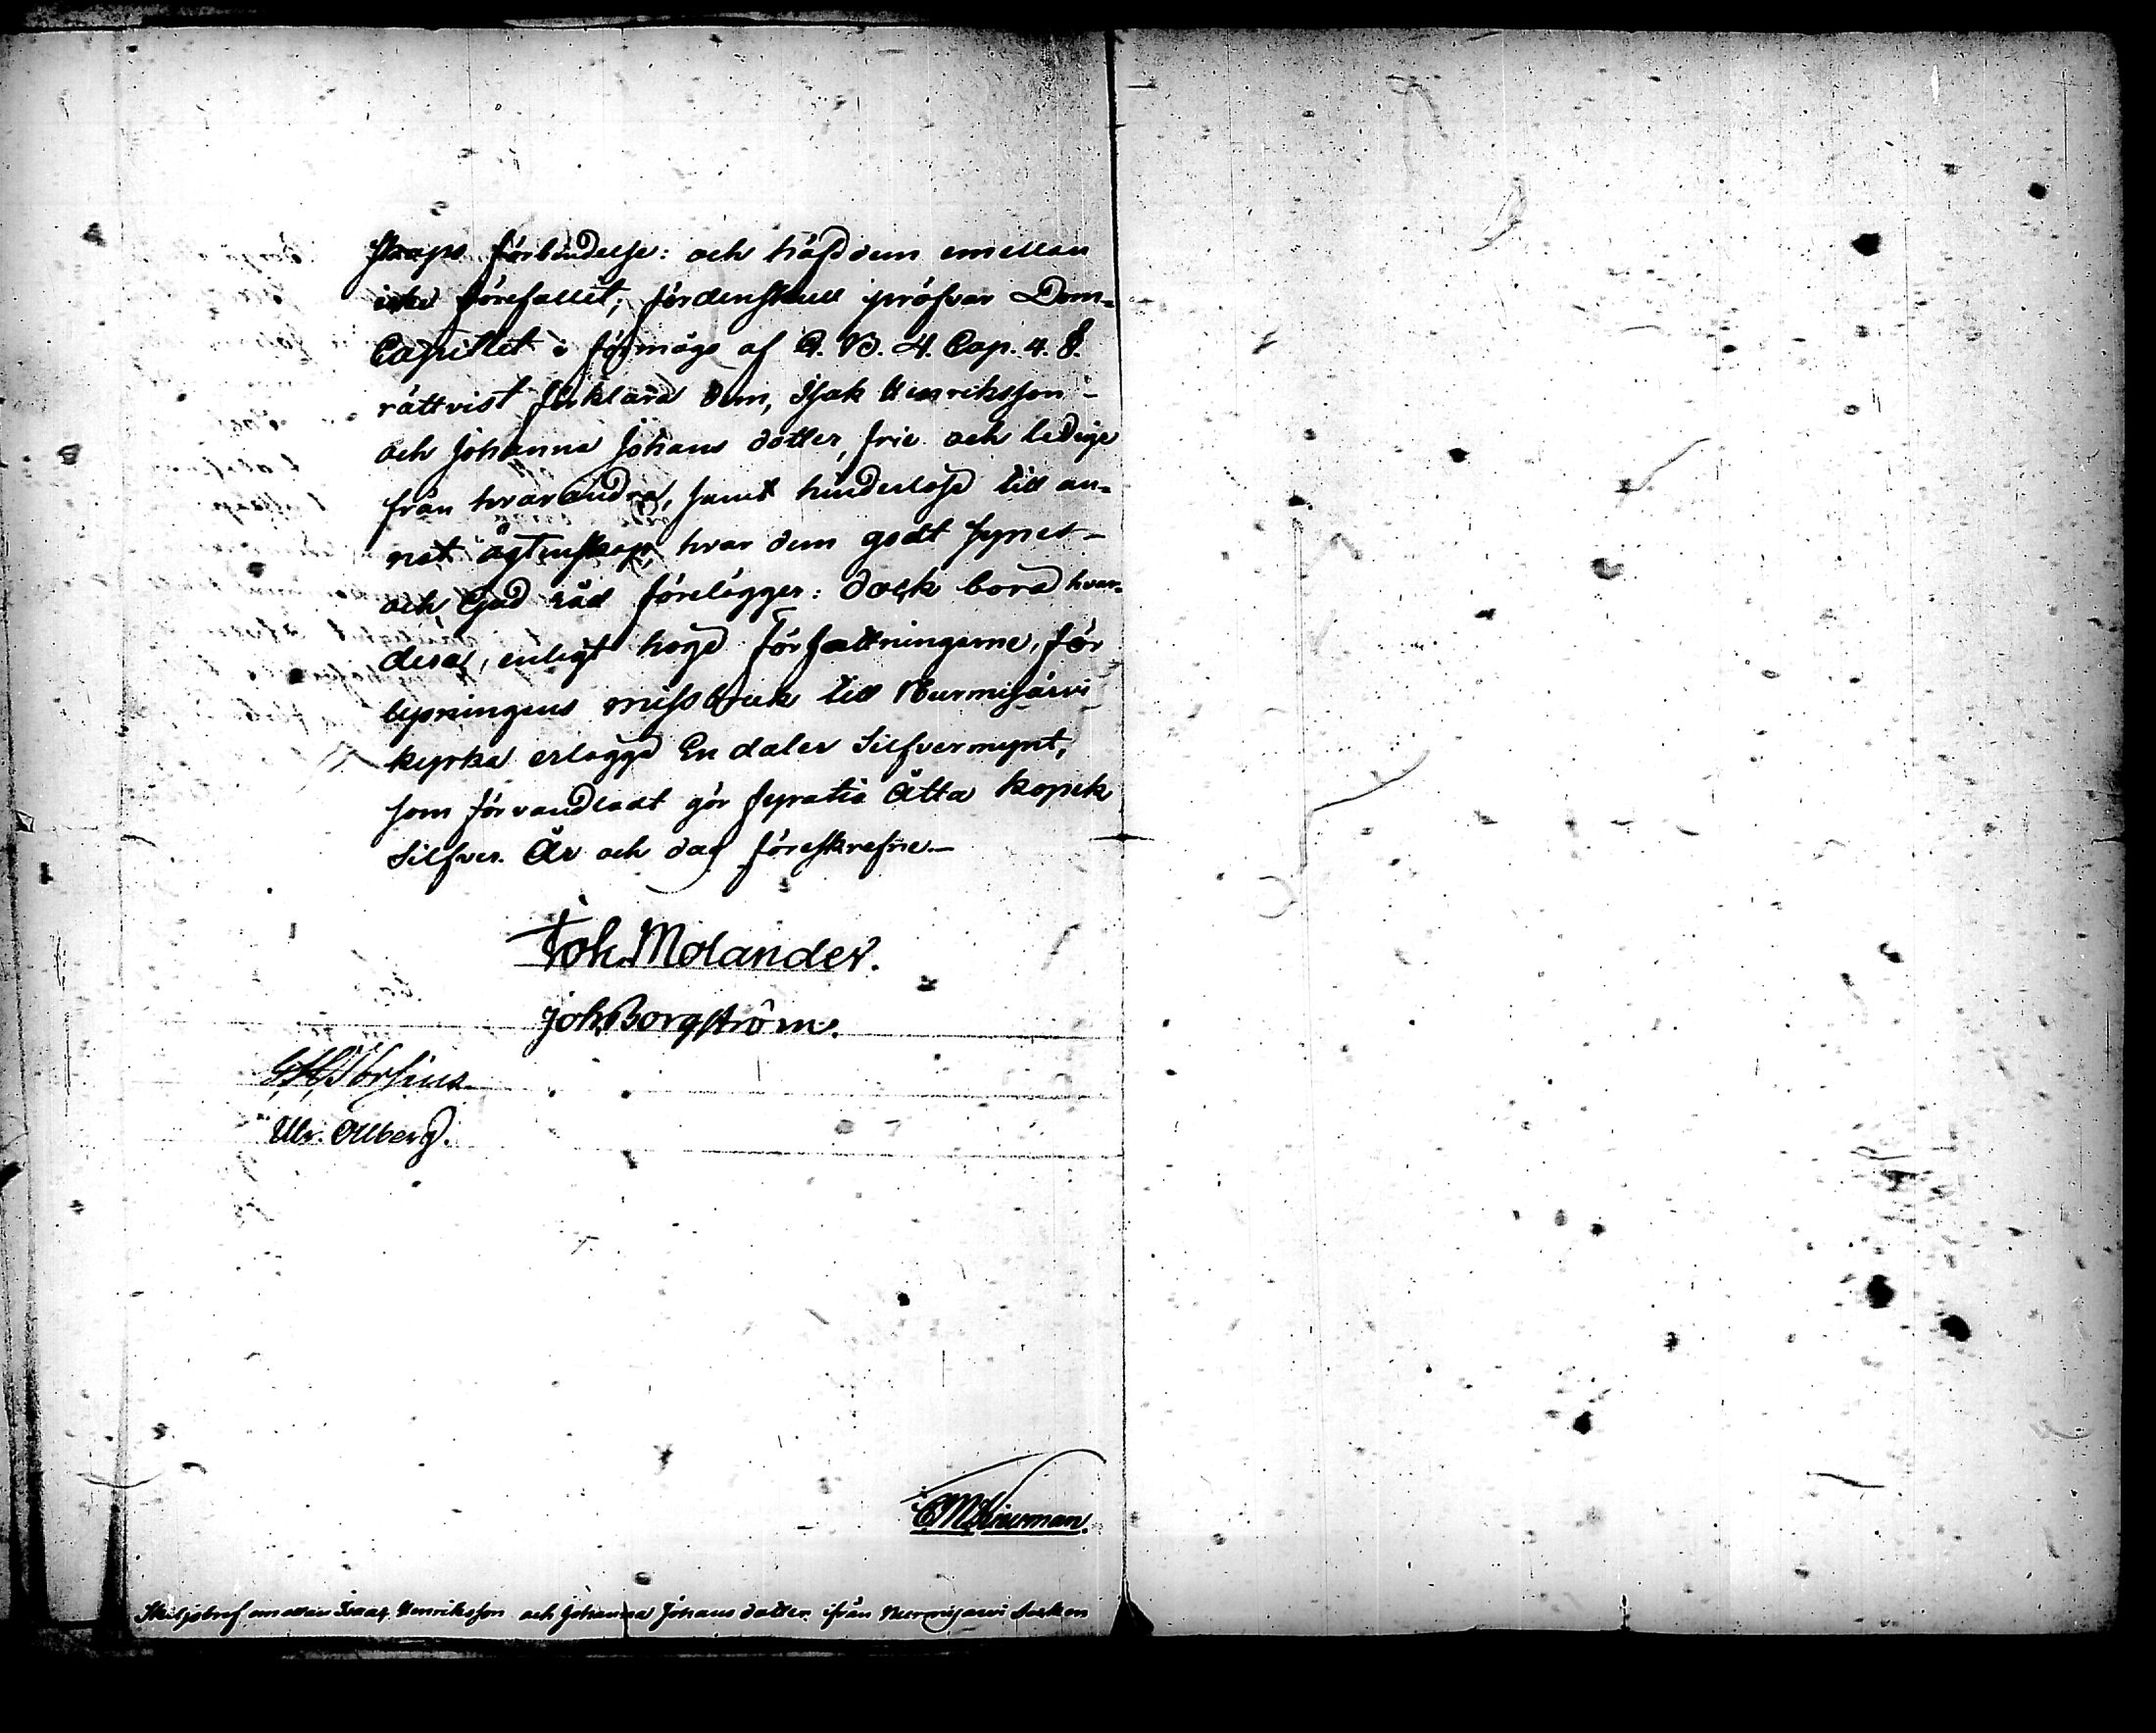 skaps förbindelse: och häfd dem emellan
icke förefallit; fördenskull pröfvar Dom-
Capitlet i förmågo af G. B. 4. Cap. 4. §.
rättvist förklara dem, Isak Henriksson -
och Johanna Johans dotter, frie och ledige
från hvarandra, samt hinderlöse till an-
nat ägtenskap, hvar dem godt synes -
och Gud råd förelägger: dock böra hvar-
dera, enligt höge Författningarne, för
lysningens missbruk till Nurmijärvi
kyrka erlägga En daler Silfvermynt,
som förvandladt gör fyratio Åtta kopek
Silfver. År och dag föreskrefne.-
Joh. Molander.
Joh. Borgström.
Ulr. Ollberg.
Skiljobref emellan Isaac Henriksson och Johanna Johans dotter ifrån Nurmijärvi Sockn